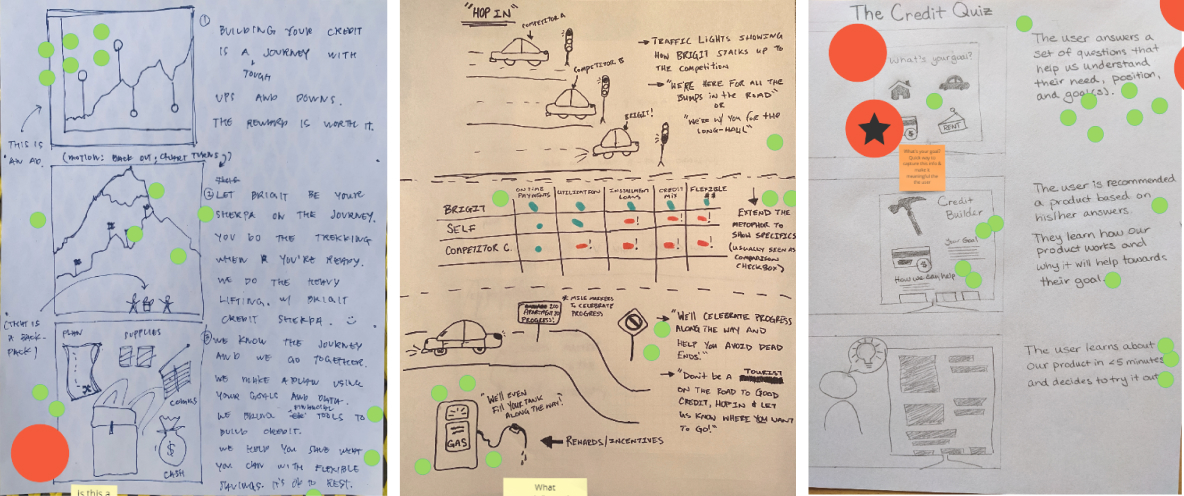 ①
BUILDING YOUR CREDIT
IS A JOURNEY WITH
TOUGH
UPS AND DOWNS.
THE REWARD IS WORTH IT.
THIS IS
AN AD.
(MOTION: BACK ON, CHART TURNS)
② LET BRIGIT BE YOUR
SHERPA ON THE JOURNEY.
YOU DO THE TREKKING
WHEN YOU'RE READY.
WE DO THE HEAVY
LIFTING. W/ BRIGIT
CREDIT SHERPA.
(THAT IS
A BACK-
PACK)
PLAN
SUPPLIES
COINS
CASH
③ WE KNOW THE JOURNEY
AND WE GO TOGETHER.
WE MAKE A PLAN USING
YOUR GOALS AND DATA.
WE BRING TOOLS TO
BUILD CREDIT.
WE HELP YOU SAVE WHAT
YOU CAN WITH FLEXIBLE
SAVINGS. IT'S OK TO REST.
Is this a
"HOP IN"
COMPETITOR A
COMPETITOR B
BRIGIT!
→ TRAFFIC LIGHTS SHOWING
HOW BRIGIT STACKS UP TO
THE COMPETITION
→ "WE'RE HERE FOR ALL THE
BUMPS IN THE ROAD"
OR
"WE'RE W/ YOU FOR THE
LONG-HAUL"
ON TIME PAYMENTS
UTILIZATION
INSTALLMENT LOANS
CREDIT MIX
FLEXIBLE
BRIGIT
SELF
COMPETITOR C.
EXTEND THE
METAPHOR TO
SHOW SPECIFICS
(USUALLY SEEN AS
COMPARISON
CHECKBOX)
APARTMENT
PROGRESS!
* MILE MARKERS
TO CELEBRATE
PROGRESS
→ "WE'LL CELEBRATE PROGRESS
ALONG THE WAY AND
HELP YOU AVOID DEAD
ENDS!"
→ "DON'T BE A TOURIST
ON THE ROAD TO GOOD
CREDIT, HOP IN & LET
US KNOW WHERE YOU WANT
TO GO!"
"WE'LL EVEN
FILL YOUR TANK
ALONG THE WAY!"
GAS
REWARDS/INCENTIVES
What
The Credit Quiz
What's your goal?
RENT
What's your goal?
Quick way to
capture this info &
make it
meaningful to
the user
The user answers a
set of questions that
help us understand
their need, position,
and goal(s).
Credit
Builder
Your Goal
How we can help
The user is recommended
a product based on
his/her answers.
They learn how our
product works and
why it will help towards
their goal.
The user learns about
Our product in <5 minutes
and decides to try it out